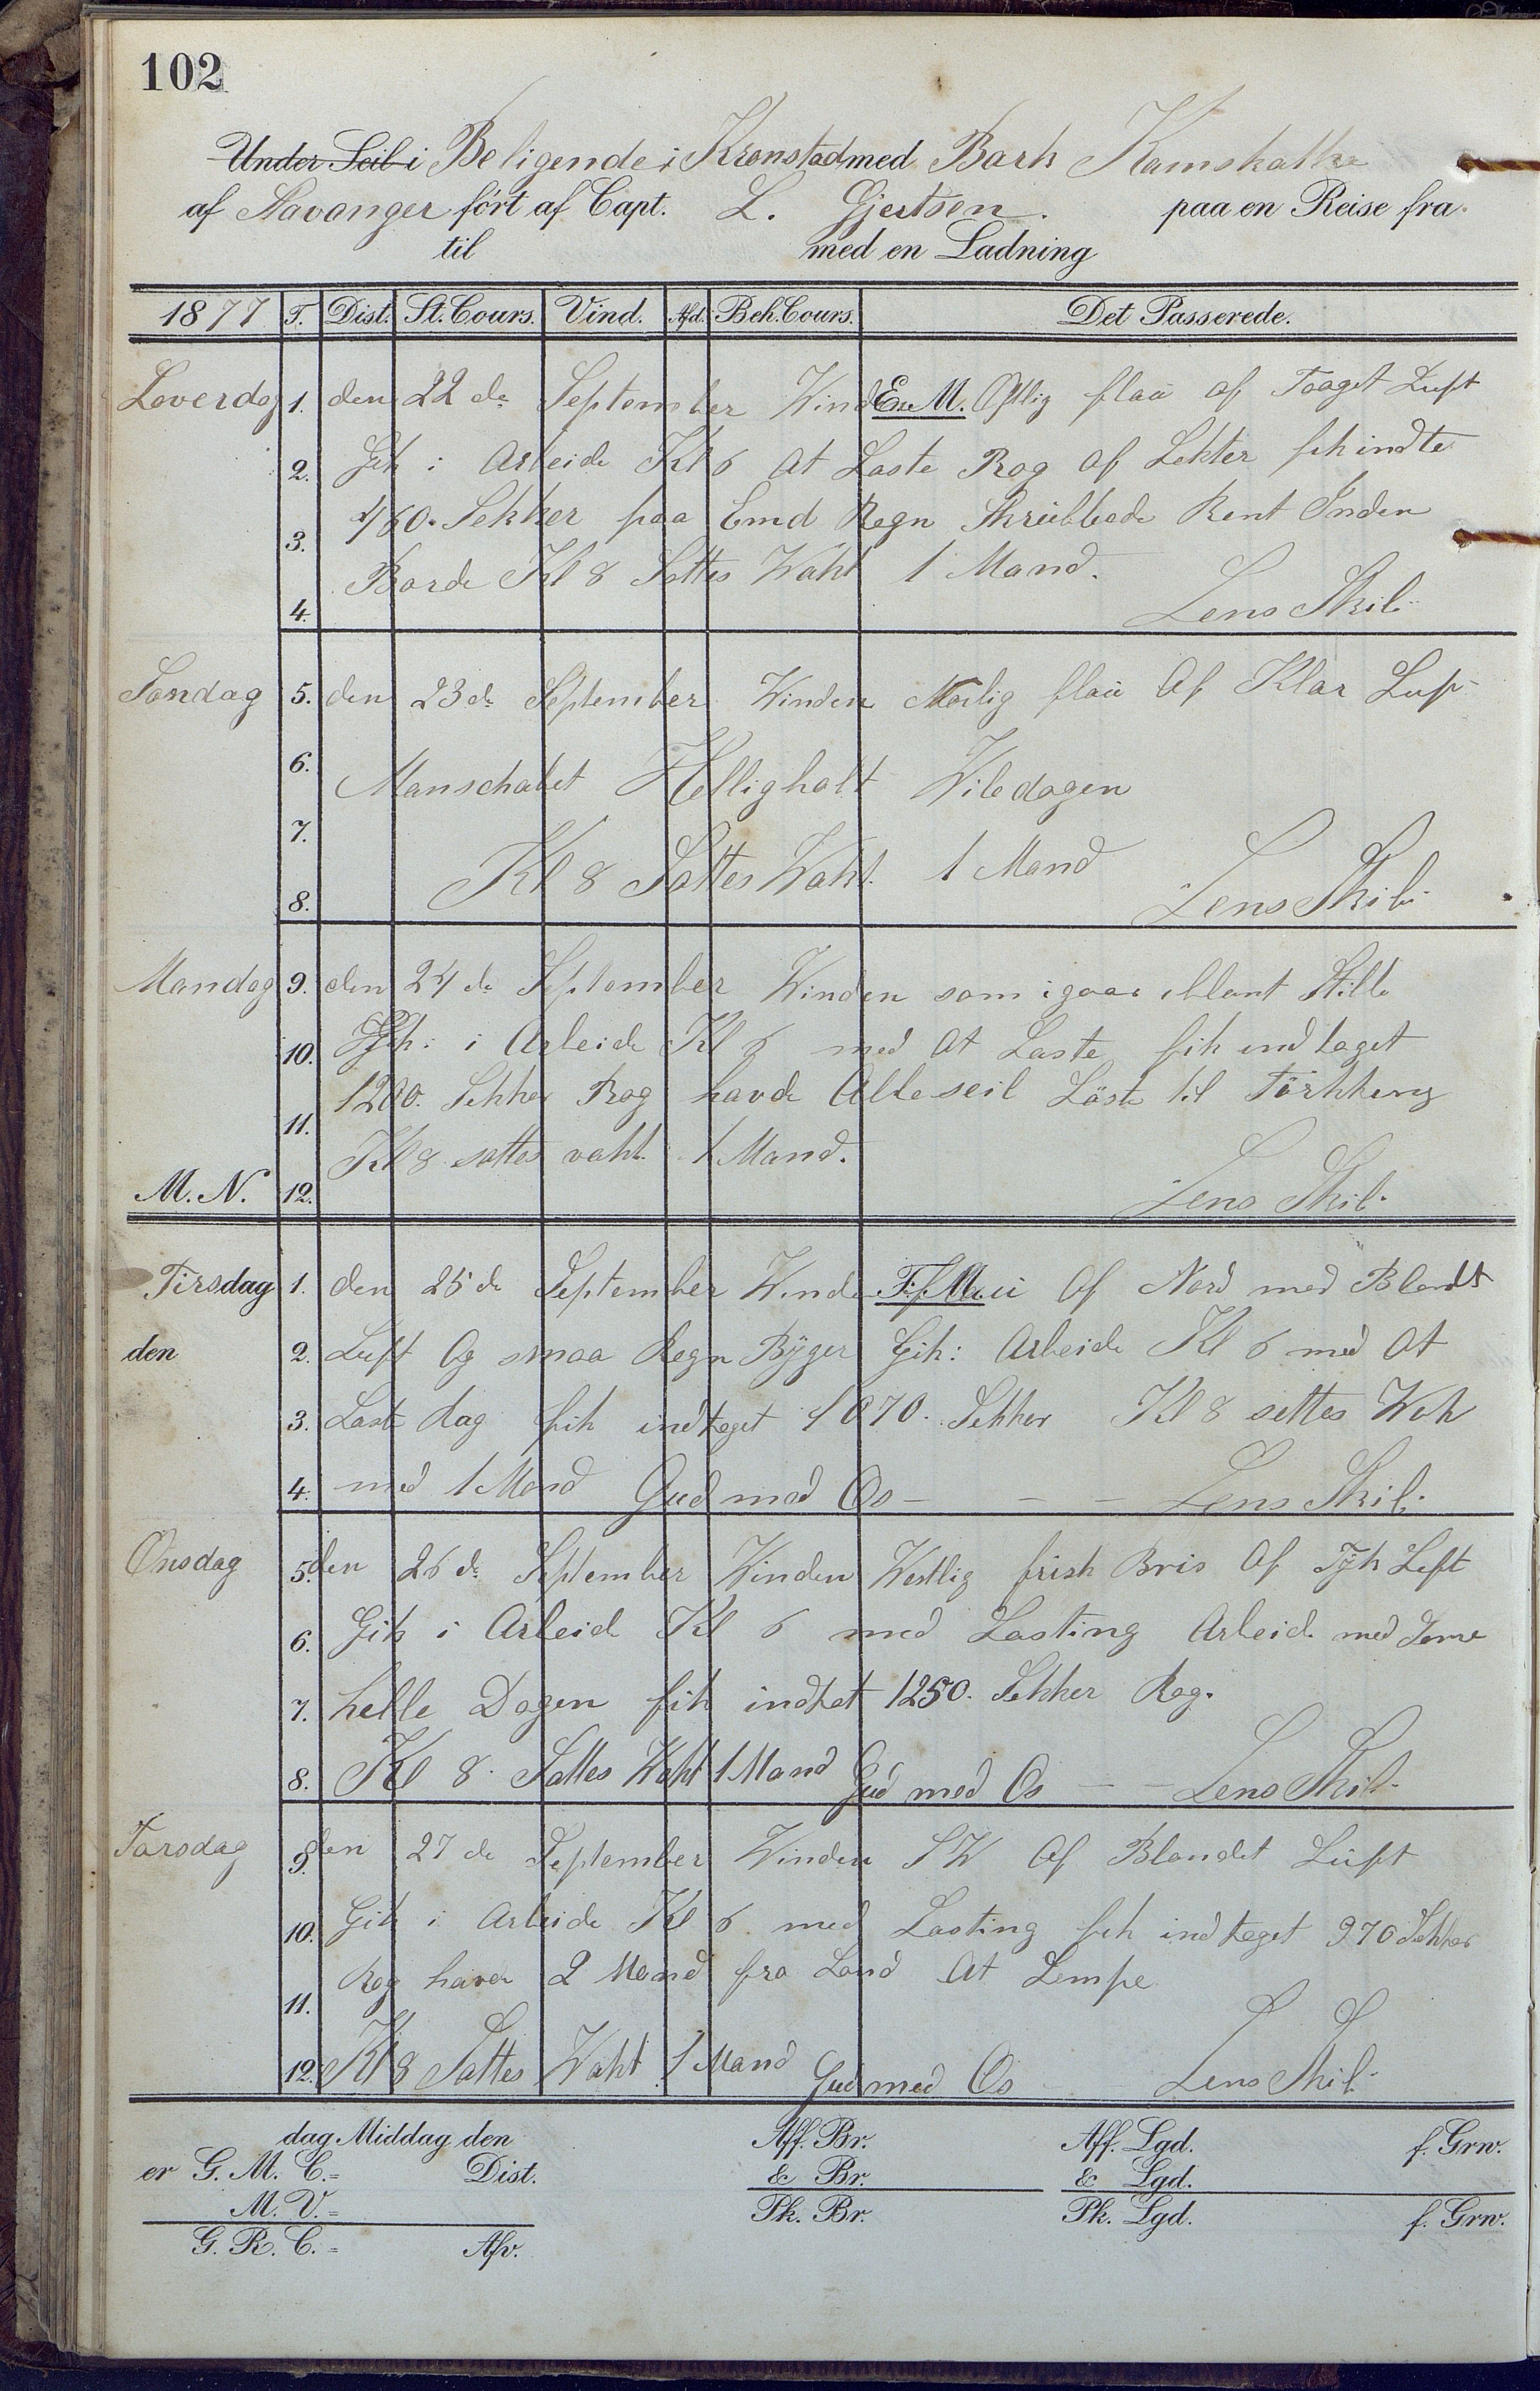 102
Under Seil i Beligende i Kronstad med Bark Kamskatka
af Stavanger fört af Capt. L. Gjertsen. paa en Reise fra
til med en Ladning
1877 T. Dist. St. Cours. Vind. Afd. Beh. Cours. Det Passerede.
Loverdag 1. den 22de September Wind E.M. Ostlig flaü af Taaget Luft
2. Gik i Arbeide Kl 6 At Laste Rog af Lekter fik indte
3. 460. Sekker paa Emd Regn Skrübbede Rent Inden
Borde Kl 8 Sattes Wakt 1 Mand.
4. Lens Skib
Sondag 5. den 23de September Winden Norlig flaü Af Klar Luf
6. Manschabet Helligholt Wiledagen
7.
Kl 8 Sattes Wakt. 1 Mand
8. Lens Skib
Mandag 9. den 24de September Winden som igaar iblant Stille
10. Gik i Arbeide Kl 6 med At Laste fik indtaget
1200. Sekker Rog havde Alle seil Löste til Törkking
11.
Kl 8 sattes vakt 1 Mand.
M. N. 12. Lens Skib
Tirsdag 1. den 25de September Winde F.M. flaü Af Nord med Blandt
den 2. Luft Og smaa Regn Bÿger Gik: Arbeide Kl 6 med At
3. Laste dag fik indtaget 1070. Sekker Kl 8 settes Wok
4. med 1 Mand Gud med Os - - - Lens Skib
Onsdag 5. den 26de September Winden Westlig frisk Bris Af Tÿk Luft
6. Gik i Arbeide Kl 6 med Lasting Arbeid med
7. helle Dagen fik indtat 1250. Sekker Rog.
8. Kl 8. Sattes Wakt 1 Mand Gud med Os - - Lens Skib
Tarsdag 9. den 27de September Winden SW Af Blandet Lüft
10. Gik i Arbeide Kl 6 med Lasting fik indtaget 970 Sekker
Rog haver 2 Mand fra Land At Lempe
11.
12. Kl 8 Sattes Wakt 1 Mand Gud med Os Lens Skib
dag Middag den Aff. Br. Aff. Lgd. f. Grw.
er G. M. C.= Dist. & Br. & Lgd.
M. V.= Pk. Br. Pk. Lgd. f. Grw.
G. R. C.= Afv.